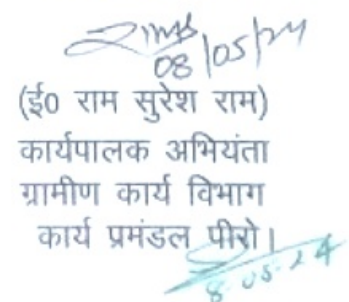 08/05/24
(ई0 राम सुरेश राम)
कार्यपालक अभियंता
ग्रामीण कार्य विभाग
कार्य प्रमंडल पीरो।
8.05.24